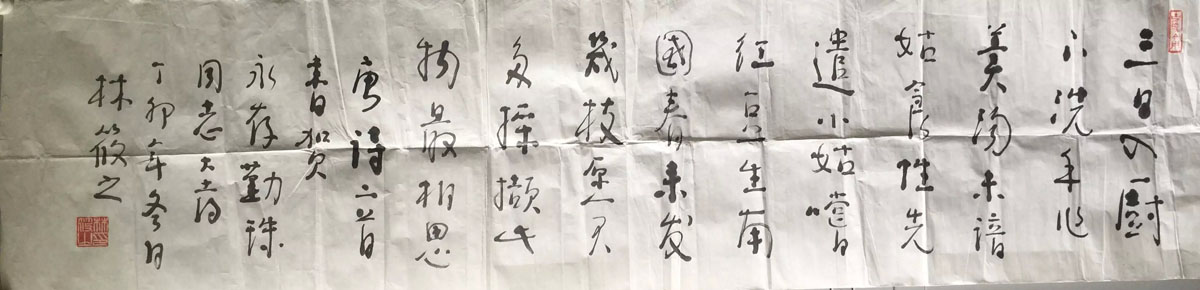 三日入厨
下洗手作
羹汤未谙
姑食性先
遣小姑嘗
红豆生南
國春来发
幾枝愿君
多採擷此
物最相思
唐诗二首
書贺
永存勤珠
同志大喜
丁卯年冬月
林筱之